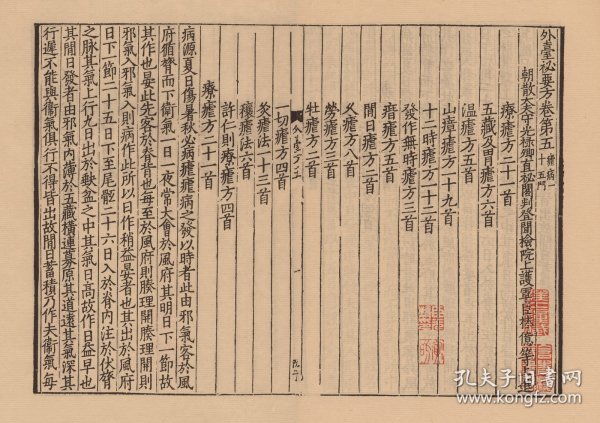 外臺祕要方卷第五 瘧病一十五門
朝散大夫守光祿卿直祕閣判登聞檢院上護軍臣林億等上進
療瘧方二十一首
五藏及胃瘧方六首
溫瘧方五首
山瘴瘧方一十九首
十二時瘧方一十二首
發作無時瘧方三首
瘖瘧方五首
間日瘧方二首
久瘧方八首
勞瘧方三首
牡瘧方二首
外臺方五
一
一切瘧方四首
灸瘧法一十三首
禳瘧法六首
許仁則療瘧方四首
療瘧方二十一首
病源夏日傷暑秋必病瘧瘧病之發以時者此由邪氣客於風
府循膂而下衛氣一日一夜常大會於風府其明日下一節故
其作也晏此先客於脊背也每至於風府則腠理開腠理開則
邪氣入邪氣入則病作此所以日作稍益晏者也其出於風府
日下一節二十五日下至尾骶二十六日入於脊內注於伏膂
之脉其氣上行九日出於缺盆之中其氣日高故作日益早也
其間日發者由邪氣內薄於五藏橫連募原其道遠其氣深其
行遲不能與衛氣俱行不得皆出故間日蓄積乃作夫衛氣每
孔夫子旧书网
www.kongfz.com